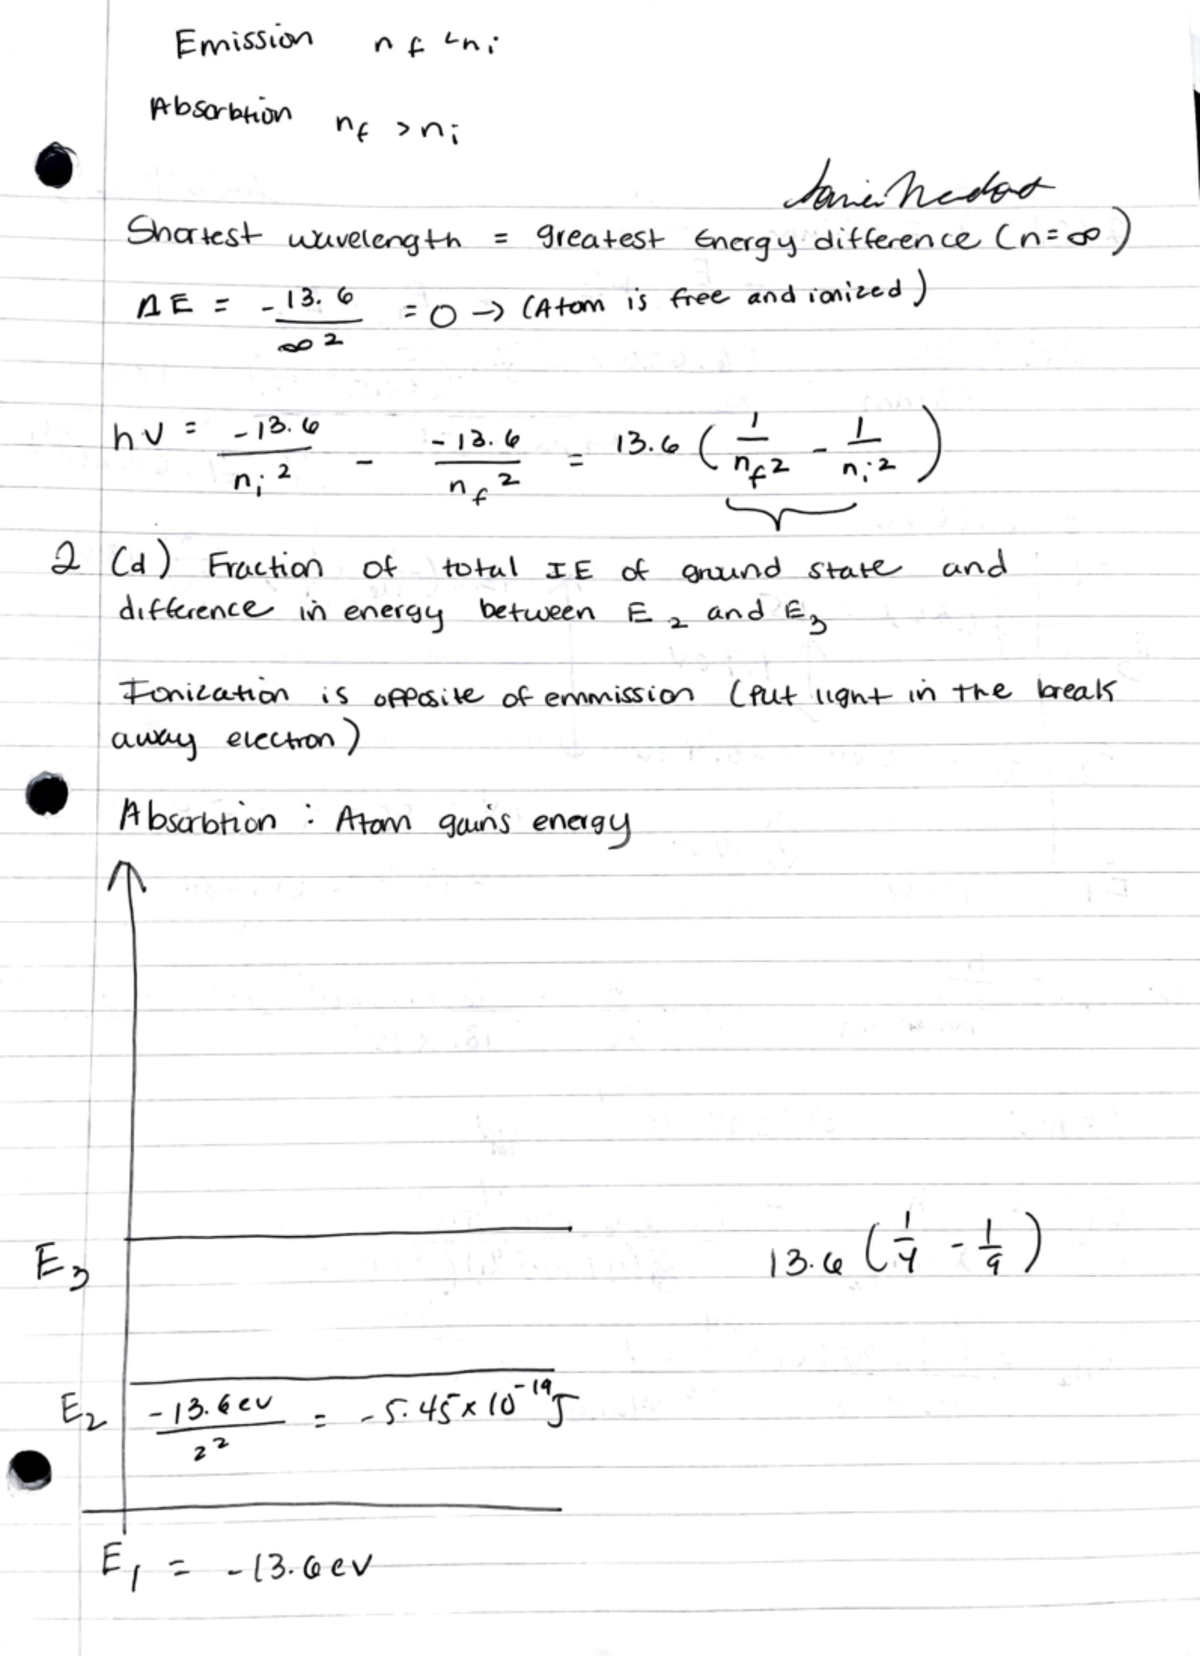 Emission nf < ni
Absorbtion nf > ni
Shortest wavelength = greatest Energy difference (n=∞)
ΔE = -13.6/∞² = 0 → (Atom is free and ionized)
hν = -13.6/ni² - -13.6/nf² = 13.6 (1/nf² - 1/ni²)
2 (d) Fraction of total IE of ground state and
difference in energy between E₂ and E₃
Ionization is opposite of emmission (put light in the break
away electron)
Absorbtion : Atom gains energy
E₃ 13.6 (1/4 - 1/9)
E₂ -13.6ev/2² = -5.45 x 10⁻¹⁹J
E₁ = -13.6ev